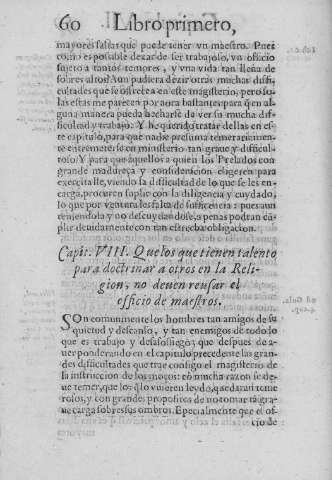 60 Libro primero,
mayores faltas que puede tener vn maestro. Pues
como es possible dexar de ser trabajoso, vn officio
sujeto a tantos temores, y vna vida tan llena de
sobresaltos? Aun pudiera dezir otras muchas diffi-
cultades que se offrecen en este magisterio, pero so-
las estas me parecen por aora bastantes para q̃ en al-
guna manera pueda hecharse de ver su mucha dif-
ficultad y trabajo. Y he querido tratar dellas en es-
te capitulo, para que nadie presuma temerariamen-
te entremeterse en ministerio tan graue y difficul-
toso. Y para que aquellos a quien los Prelados con
grande madureça y consideracion eligeren para
exercitalle, viendo la difficultad de lo que se les en-
carga, procuren suplir con la diligencia y cuydado,
lo que por ventura les falta de sufficiencia: pues aun
teniendola y no descuydandose, a penas podran cũ-
plir deuidamente con tan estrecha obligacion.
Capit. VIII. Que los que tienen talento
para doctrinar a otros en la Reli-
gion, no deuen reusar el
officio de maestros.
SOn comunmente los hombres tan amigos de su
quietud y descanso, y tan enemigos de todo lo
que es trabajo y desasossiego; que despues de a-
uer ponderando en el capitulo precedente las gran-
des difficultades que trae consigo el magisterio de
la instruccion de los moços: cõ mucha razon se de-
ue temer, que los q̃ lo vuieren leydo, quedaran teme-
rosos, y con grandes propositos de no tomar tã gra-
ue carga sobre sus ombros. Especialmente que el of-
cio de